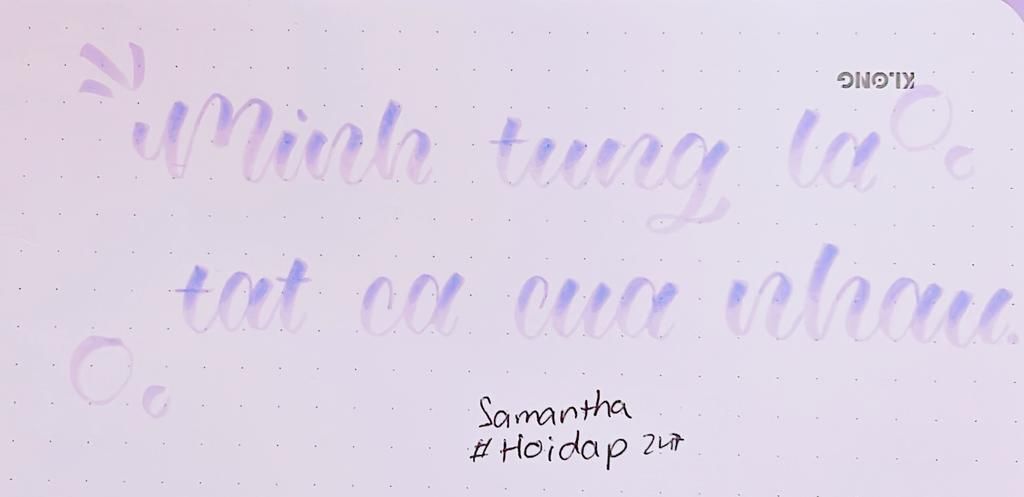 KLONG
Minh tung la
tat ca cua nhau.
Samantha
#Hoidap 247